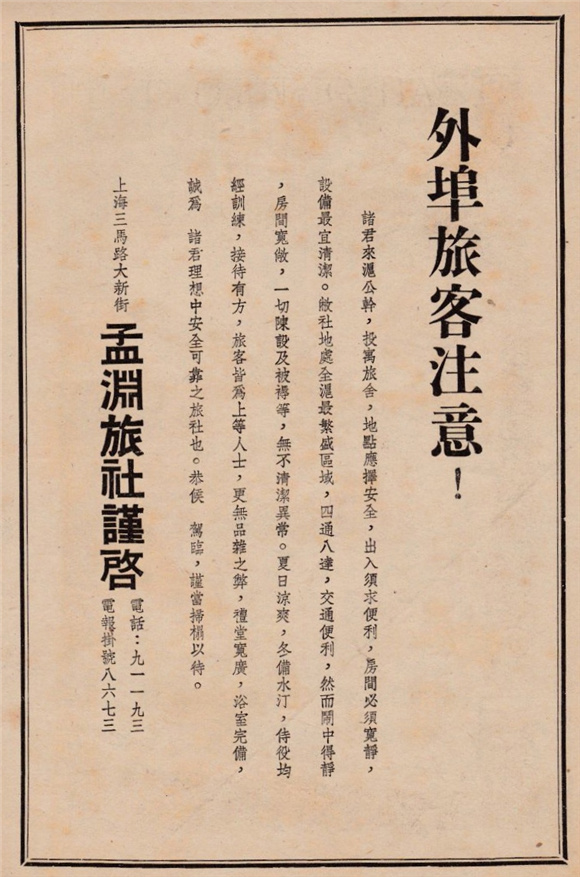 外埠旅客注意！
諸君來滬公幹，投寓旅舍，地點應擇安全，出入須求便利，房間必須寬靜，
設備最宜清潔。敝社地處全滬最繁盛區域，四通八達，交通便利，然而鬧中得靜
，房間寬敞，一切陳設及被褥等，無不清潔異常。夏日涼爽，冬備水汀，侍役均
經訓練，接待有方，旅客皆爲上等人士，更無品雜之弊，禮堂寬廣，浴室完備，
誠爲 諸君理想中安全可靠之旅社也。恭候 駕臨，謹當掃榻以待。
上海三馬路大新街
孟淵旅社謹啓
電話：九一一九三
電報掛號八六七三